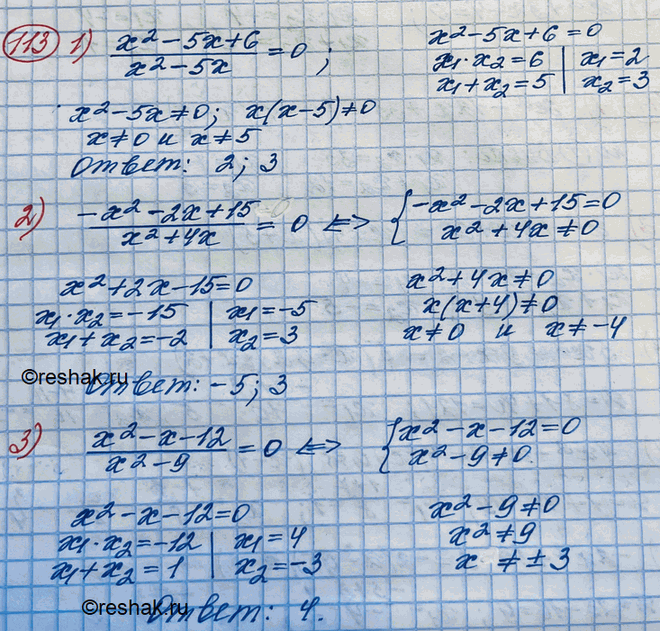 113 1) x² - 5x + 6 / x² - 5x = 0 ; x² - 5x + 6 = 0
x₁ · x₂ = 6 | x₁ = 2
x₁ + x₂ = 5 | x₂ = 3
x² - 5x ≠ 0 ; x(x - 5) ≠ 0
x ≠ 0 и x ≠ 5
Ответ: 2 ; 3
2) -x² - 2x + 15 / x² + 4x = 0 <=> { -x² - 2x + 15 = 0
x² + 4x ≠ 0
x² + 2x - 15 = 0 x² + 4x ≠ 0
x₁ · x₂ = -15 | x₁ = -5 x(x + 4) ≠ 0
x₁ + x₂ = -2 | x₂ = 3 x ≠ 0 и x ≠ -4
©reshak.ru
Ответ: -5 ; 3
3) x² - x - 12 / x² - 9 = 0 <=> { x² - x - 12 = 0
x² - 9 ≠ 0
x² - x - 12 = 0 x² - 9 ≠ 0
x₁ · x₂ = -12 | x₁ = 4 x² ≠ 9
x₁ + x₂ = 1 | x₂ = -3 x ≠ ± 3
©reshak.ru
Ответ: 4.